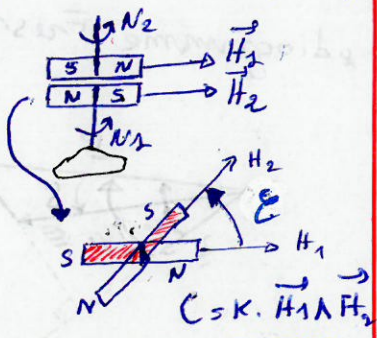 N2
S N H1
N S H2
N1
H2
S ε
S H1
N
N C = K. H1 Λ H2